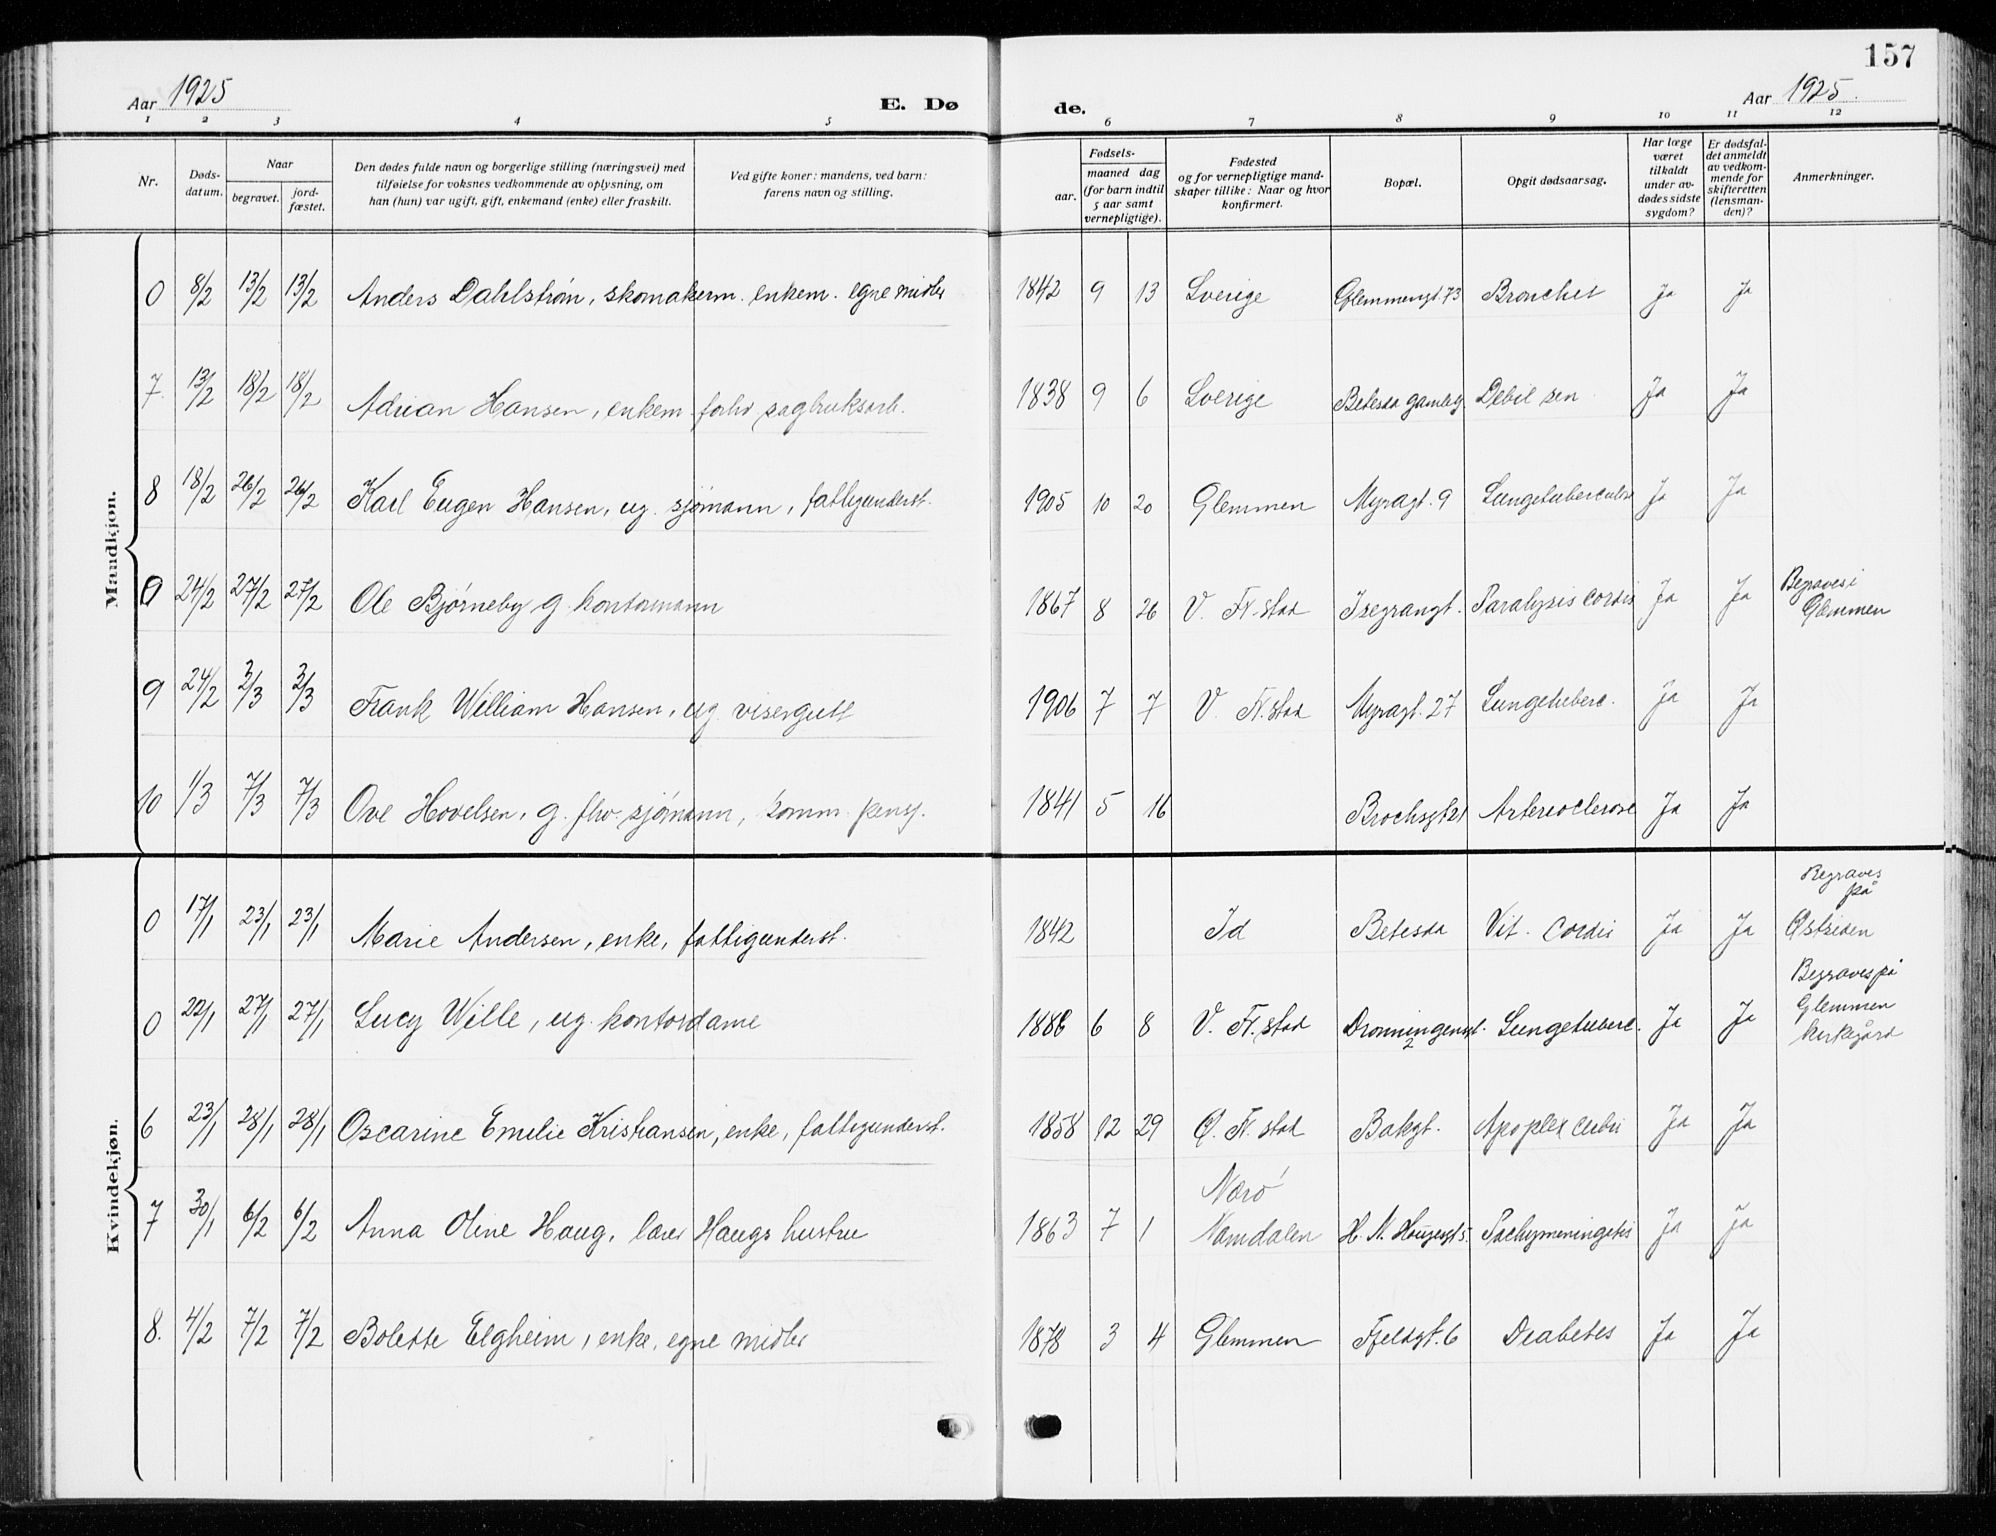 157
Aar 1925 E. Dø de. Aar 1925.
1 2 3 4 5 6 7 8 9 10 11 12
Nr. Døds-datum. Naar begravet. jord-fæstet. Den dødes fulde navn og borgerlige stilling (næringsvei) med tilføielse for voksnes vedkommende av oplysning, om han (hun) var ugift, gift, enkemand (enke) eller fraskilt. Ved gifte koner: mandens, ved barn: farens navn og stilling. Fødsels- aar. maaned dag (for barn indtil 5 aar samt vernepligtige). Fødested og for vernepligtige mandskaper tillike: Naar og hvor konfirmert. Bopæl. Opgit dødsaarsag. Har læge været tilkaldt under avdødes sidste sygdom? Er dødsfaldet anmeldt av vedkommende for skifteretten (lensmanden)? Anmerkninger.
Mandkjøn.
0 8/2 13/2 13/2 Anders Dahlstrøm, skomakerm. enkem. egne midler 1842 9 13 Sverige Glemmengt. 73 Bronchit Ja Ja
7. 13/2 18/2 18/2 Adrian Hansen, enkem. forhv sagbruksarb. 1838 9 6 Sverige Betesda gamleh. Debil sen. Ja Ja
8 18/2 26/2 26/2 Karl Eugen Hansen, ug. sjømann, fattigunderst. 1905 10 20 Glemmen Myragt. 9 Lungetuberculose Ja Ja
0 24/2 27/2 27/2 Ole Bjørneby g. kontormann 1867 8 26 V. Fr.stad Isegrangt. Paralysis cordis Ja Ja Begraves i Glemmen
9 24/2 3/3 3/3 Frank William Hansen, ug. visergutt 1906 7 7 V. Fr.stad Myragt. 27 Lungetuberc. Ja Ja
10 1/3 7/3 7/3 Ove Hovelsen, g. fhv. sjømann, komm. pensj. 1841 5 16 Brochsgt 21 Arterioclerose Ja Ja
Kvindekjøn.
0 17/1 23/1 23/1 Marie Andersen, enke, fattigunderst. 1842 Id Betesda Vit. cordis Ja Ja Begraves på Østsiden
0 22/1 27/1 27/1 Lucy Wille, ug. kontordame 1886 6 8 V. Fr.stad Dronningensgt. 2 Lungetuberc. Ja Ja Begraves på Glemmen kirkegård
6 23/1 28/1 28/1 Oscarine Emelie Kristiansen, enke, fattigunderst. 1858 12 29 Ø. Fr.stad Bakgt. Apoplex cerbri Ja Ja
7 30/1 6/2 6/2 Anna Oline Haug, lærer Haugs hustru 1863 7 1 Nærø Namdalen H. N. Haugesgt 5. Pachymeningitis Ja Ja
8. 4/2 7/2 7/2 Bolette Elgheim, enke, egne midler 1878 3 4 Glemmen Fjeldgt. 6 Diabetes Ja Ja